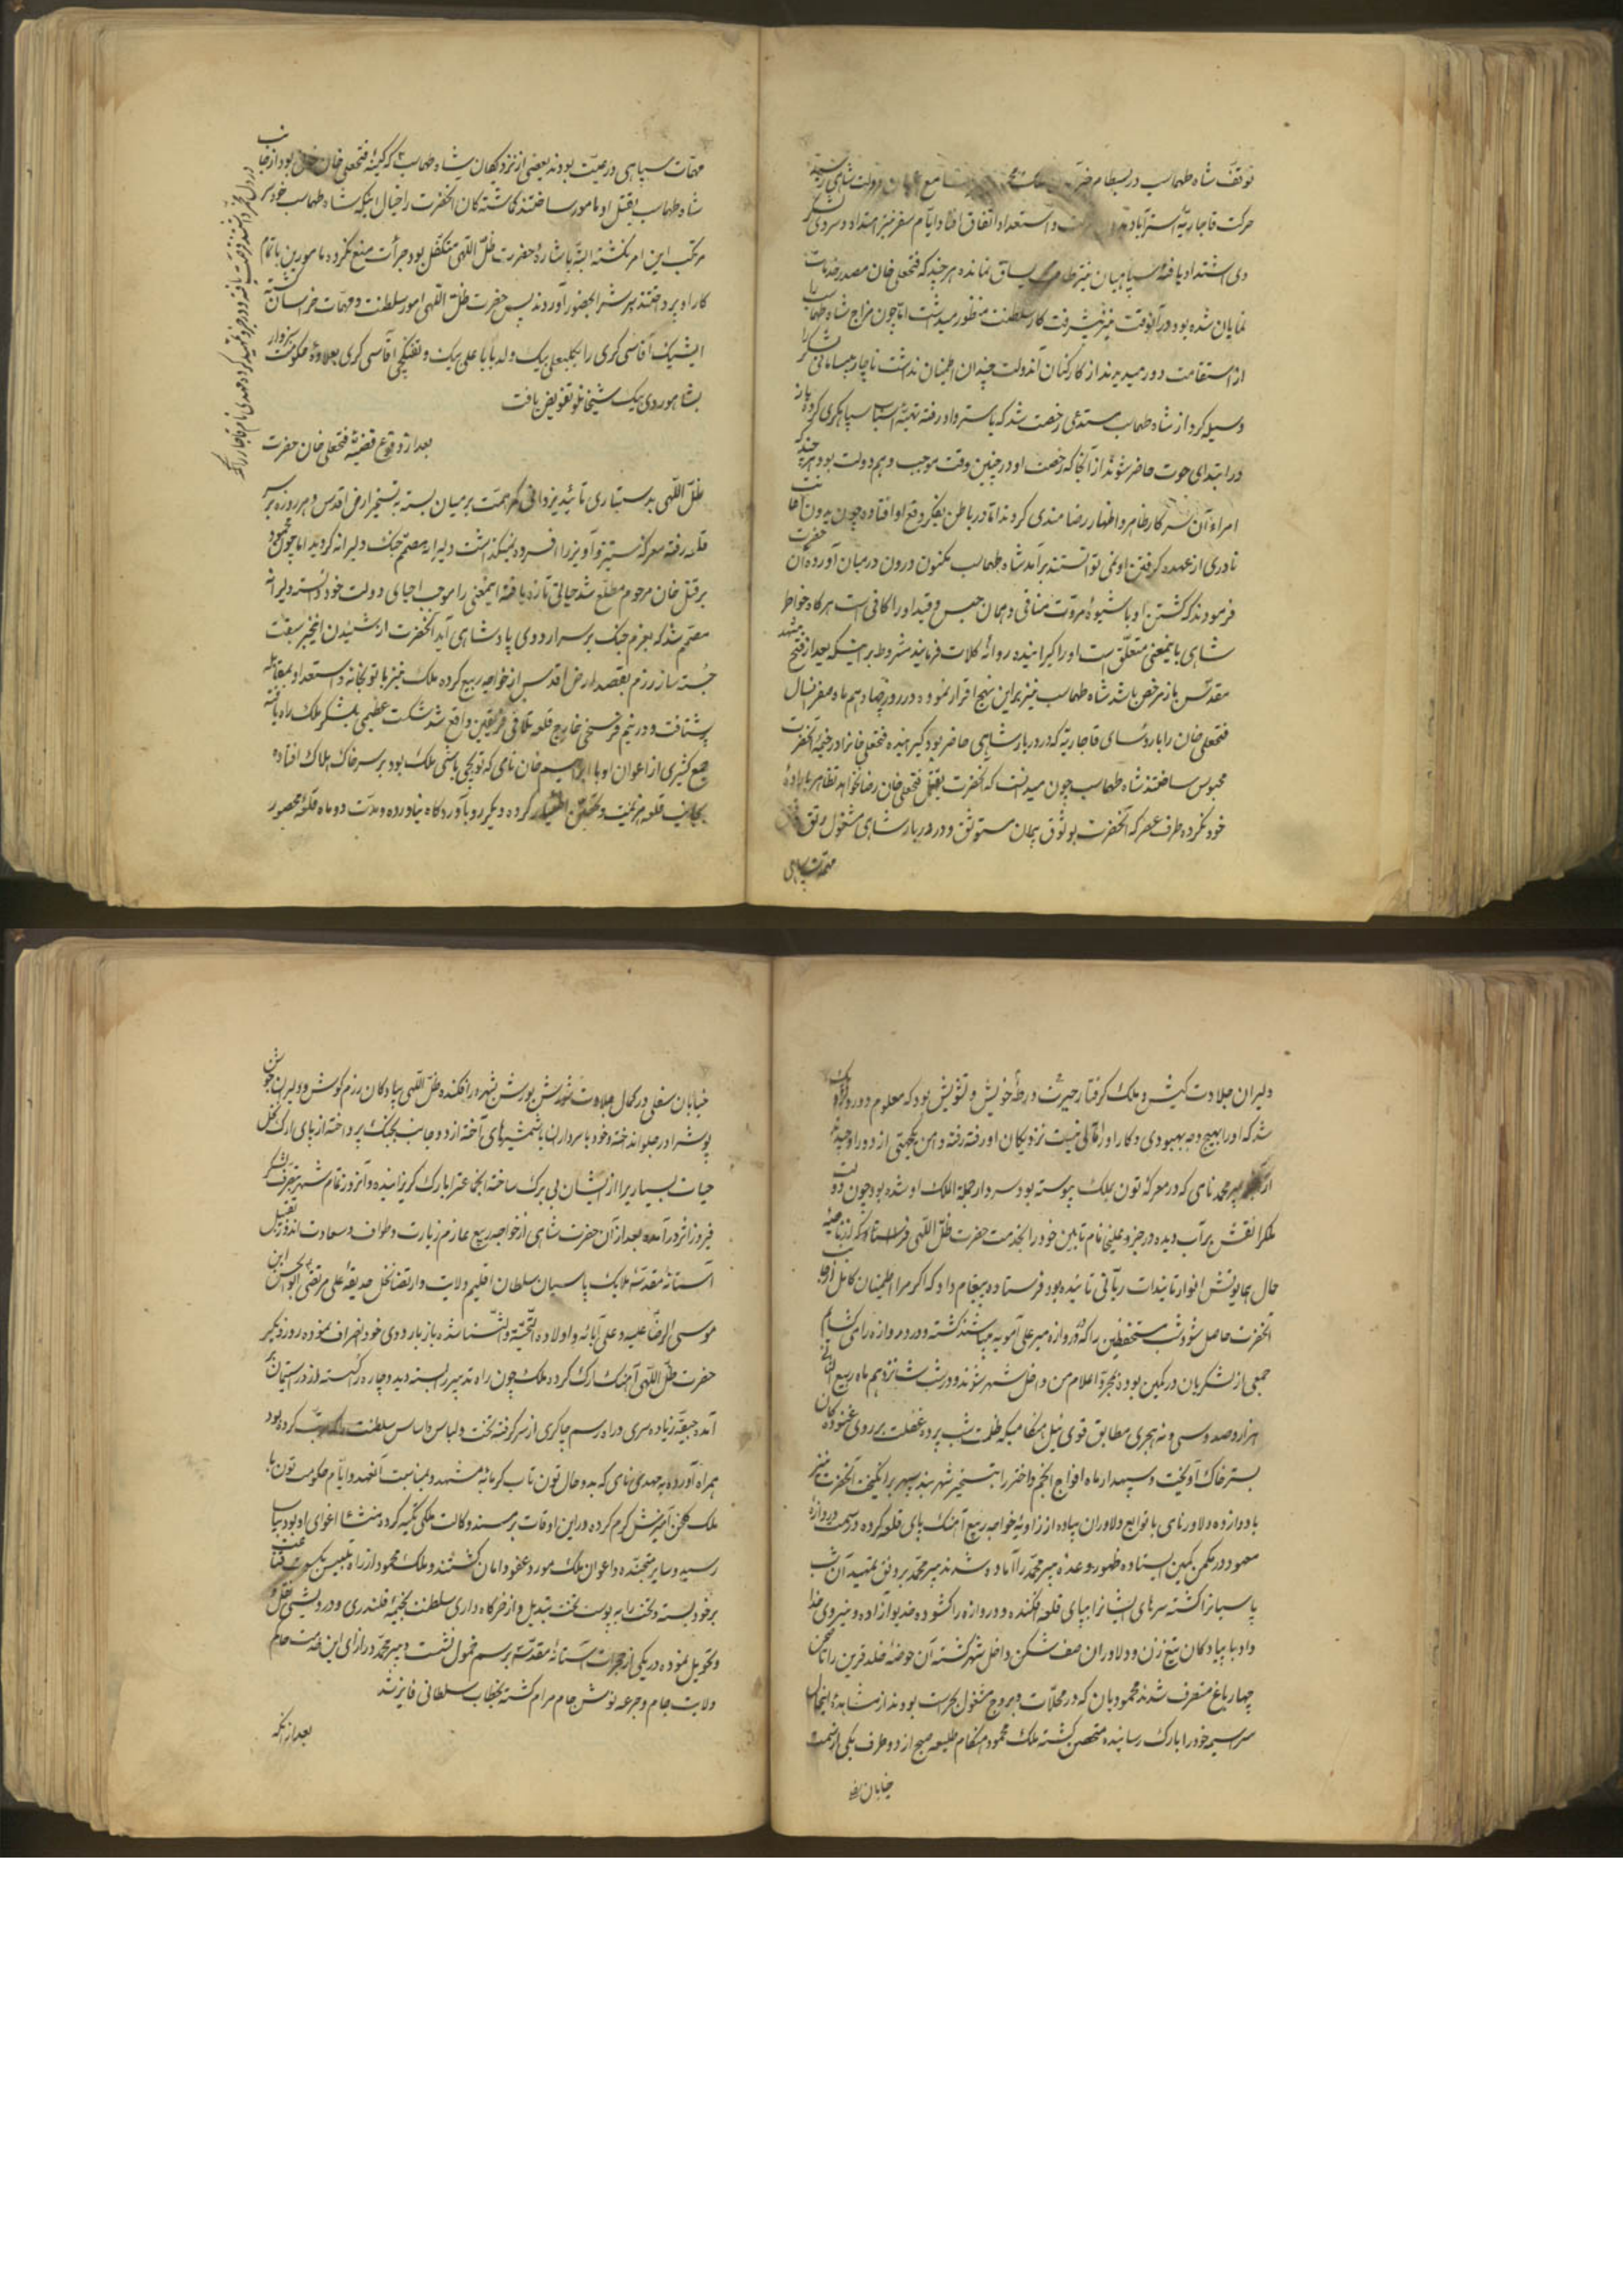 توقف شاه طهماسب در بسطام
حرکت قاجاریهٔ استراباد و استعداد اتفاق افتاد و ایام سفر نیز امتداد و سردی
دی اشتداد یافته سپاهیان نیز طاقت یساق نمانده هرچند که فتحعلی خان مصدر خدمات
نمایان شده بود و در آنوقت نیز پیشرفت کار سلطنت منظور میداشت اما چون مزاج شاه طهماسب را
از استقامت دور میدید و از کارکنان آندولت چندان اطمینان نداشت ناچار بیسامانی لشکر را
وسیله کرد از شاه طهماسب مستدعی رخصت شد که باستراباد رفته تهیهٔ اسباب سپاهگری کرده باز
در ابتدای حوت حاضر شوند از آنجا که رخصت او در چنین وقت موجب وهم دولت بود هرچند که
امراء آن سرکار ظاهر و اظهار رضامندی کردند اما در باطن بفکر دفع او افتاده چون بدون اعانت
نادری از عهدهٔ گرفتن او نمی توانستند برآمد شاه طهماسب مکنون درون در میان آورده آن حضرت
فرمودند که کشتن او با شیوهٔ مروت منافی و همان حبس و قید او را کافی است هرگاه خواطر
شاهی باینمعنی متعلق است او را گیرانیده روانهٔ کلات فرمایند مشروط بر اینکه بعد از فتح مشهد
مقدس باز مرخص باشد شاه طهماسب نیز براین نهج اقرار نموده در روز چهاردهم ماه صفر آنسال
فتحعلی خان را با روسای قاجاریه که در دربار شاهی حاضر بود گیرانیده فتحعلی خانرا در خیمهٔ آنحضرت
محبوس ساختند شاه طهماسب چون میدانست که آنحضرت بقتل فتحعلی خان رضا نخواهد داد تظاهر باراده
خود نکرده طرف عصر که آنحضرت بوثوق پیمان مستوثق و در دربار شاهی مشغول رتق و فتق
مهمات سپاهی
مهمات سپاهی و رعیت بودند بعضی از نزدیکان شاه طهماسب که کینهٔ فتحعلی خان بود از جانب
شاه طهماسب بقتل او مامور ساختند گماشتگان آنحضرت را خیال اینکه شاه طهماسب خودسر
مرتکب این امر نگشته البته باشارهٔ حضرت ظل اللهی متکفل بود جرأت منع نکرده مامورین باتمام
کار او پرداختند و سرش را بحضور آوردند پس حضرت ظل اللهی امور سلطنت و مهمات خراسان گشته
ایشیک آقاسی گری را بکلبعلی بیک ولد بابا علی بیک و تفنگچی آقاسی گری بعلاوهٔ حکومت سبزوار
بشاهوردی بیک شیخانلو تفویض یافت
بعد از وقوع قضیهٔ فتحعلی خان حضرت
ظل اللهی بدستیاری تائید یزدانی کمر همت بر میان بسته به تسخیر ارض اقدس و هر روزه بر سر
قلعه رفته معرکه ستیز و آویز را افسرده نمیگذاشت و دلیرانه مصمم جنگ دلیرانه گردید اما چون محمود
بر قتل خان مرحوم مطلع شد حیاتی تازه یافته اینمعنی را موجب احیای دولت خود دانسته دلیرانه
مصمم شد که بعزم جنگ بر سر اردوی پادشاهی آید آنحضرت از شنیدن اینخبر سبقت
جسته ساز رزم بقصد ارض اقدس از خواجه ربیع کرده ملک نیز با توپخانه و استعداد بمقابله
شتافت و در نیم فرسخی خارج قلعه تلاقی فریقین واقع شد شکست عظیمی بلشکر ملک راه یافته
جمع کثیری از اعوان او با ابراهیم خان نامی که توپچی باشی ملک بود بر سر خاک هلاک افتاده
بجانب قلعه هزیمت و تحصن اختیار کرده دیگر رو بآوردگاه نیاورده و مدت دو ماه قلعه محصور
دلیران جلادت کیش و ملک گرفتار حیرت و ورطهٔ خویش و تشویش بود که معلوم
شد که او را بهیچوجه بهبودی و کار او را مآلی نیست نزدیکان او رفته رفته دامن یکجهتی از دور او چیدند
پیر محمد نامی که در معرکه تون بملک پیوسته بود سردار جمله الملک او شده بود چون دولت
ملک را نقش بر آب دیده در خفیه علیخان نام تابین خود را بخدمت حضرت ظل اللهی فرستاد که از ناصیه
حال همایونش انوار تائیدات ربانی تابنده بود فرستاده پیغام داد که اگر مرا اطمینان کامل از جانب
آنحضرت حاصل شود شب مستحفظین را که در دروازه میرعلی آمویه میباشند کشته و در دروازه را میگشایم
جمعی از لشکریان در کمین بوده بمجرد اعلام من داخل شهر شوند و در شب شانزدهم ماه ربیع الثانی
هزار و صد و سی و نه هجری مطابق قوی ئیل هنگامیکه ظلمت شب پرده غفلت بر روی غنودگان
بستر خاک آویخت و سپهدار ماه افواج انجم و اختر را بتسخیر شهربند سپهر برانگیخت آنحضرت نیز
با دوازده دلاور نامی با توابع دلاوران پیاده از زاویهٔ خواجه ربیع آهنگ پای قلعه کرده در سمت دروازهٔ
معهود در مکمن کمین ایستاده ظهور وعدهٔ میر محمد را آماده شدند میر محمد بر وفق تمهید آن شب
پاسبانانرا کشته سرهای ایشانرا بپای قلعه افکنده و دروازه را گشوده خدیو آزاده و نیروی خدا
داد با پیادگان تیغ زن و دلاوران صف شکن داخل شهر گشته آن حوضهٔ خلد قرین را تا صحن
چهار باغ متصرف شدند محمودیان که در محلات و بروج مشغول بحراست بودند از مشاهدهٔ اینحال
سراسیمه خود را بارک رسانیده متحصن گشته ملک محمود هنگام طلیعه صبح از دو طرف یکی از سمت
خیابان سفلی
خیابان سفلی در کمال جلادت شورش یورش بشهر در افکنده ظل اللهی پیادگان رزم کوش و دلیران جوشن
پوش را در جلو انداخته و خود با سرداران با شمشیرهای آخته از دو جانب بجنگ پرداخته از پای ارک گل
حیات بسیاریرا از ایشان بی برگ ساخته آنجماعت را بارک گریزانیده و آنروز تمام شهر بتصرف لشکر
فیروزاثر درآمده بعد از آن حضرت شاهی از خواجه ربیع عازم زیارت و طواف و سعادت اندوز تقبیل
آستانهٔ مقدسهٔ ملایک پاسبان سلطان اقلیم ولایت و ارتضا نخل حدیقهٔ علی مرتضی ابوالحسن ابن
موسی الرضا علیه و علی آبائه و اولاده التحیة و الثنا شده باز باردوی خود انصراف نموده روز دیگر
حضرت ظل اللهی آهنگ ارک کرده ملک چون راه تدبیر را بسته دید و چاره گسسته از در استیمان
آمده جیقهٔ زیاده سری در راه رسم چاکری از سر گرفته تخت و لباس و اساس سلطنت کرده بود
همراه آورده به مهدی نامی که بدو حال تون تاب گرمابهٔ مشهد و بمناسبت آنعهد و ایام حکومت تون با
ملک گلخن آمیزش گرم کرده در این اوقات بر مسند وکالت ملکی تکیه کرده منشا اغوای او بود بسیاست
رسید و سایر متجنده و اعوان ملک مورد عفو و امان گشتند و ملک محمود از راه تلبیس بکسوت قناعت
بر خود بسته و تخت را به پوست تخت تبدیل و از خرگاه داری سلطنت بخیمهٔ قلندری و درویشی نقل و
تحویل نموده در یکی از حجرات آستانهٔ مقدسه برسم خمول نشست و میر محمد در ازای این خدمت حاکم
ولایت جام و جرعه نوش جام مرام گشته بخطاب سلطانی فایز شد
بعد از آنکه